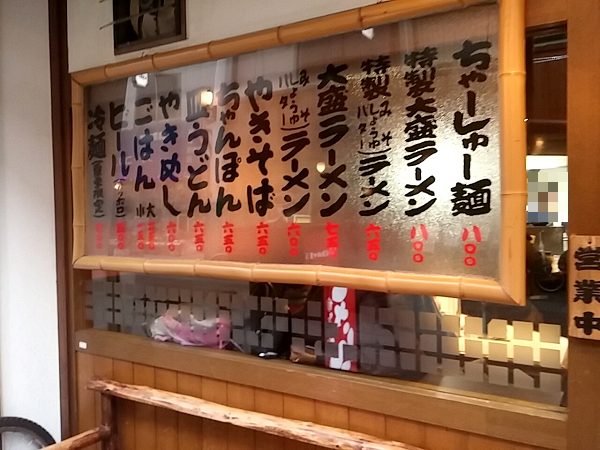 ちゃーしゅー麺 八〇〇
特製大盛ラーメン 八〇〇
特製(みそ しょうゆ バター)ラーメン 六五〇
大盛ラーメン 七五〇
(みそ しょうゆ バター)ラーメン 六〇〇
やきそば 六五〇
ちゃんぽん 六五〇
皿うどん 六五〇
やきめし 六〇〇
ごはん 大 小
ビール
冷麺(夏季限定)
営業中